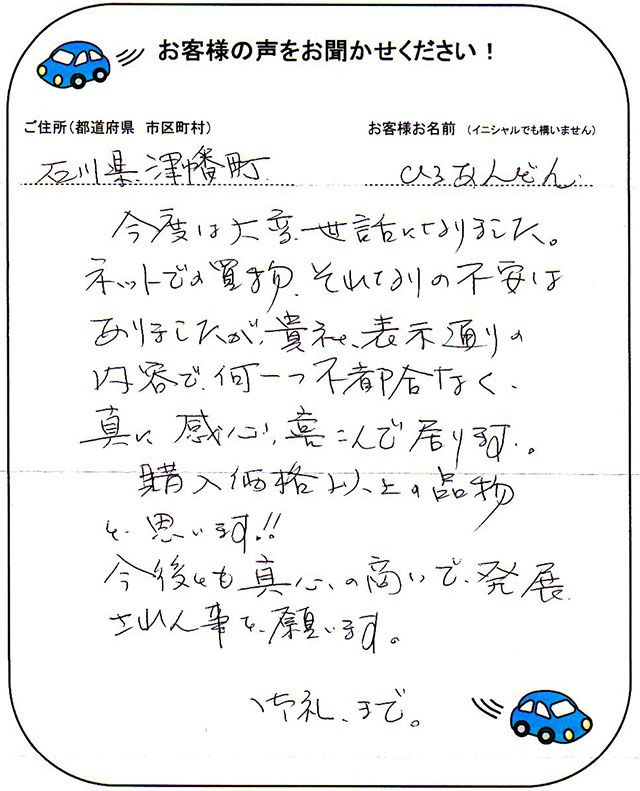 お客様の声をお聞かせください！
ご住所（都道府県　市区町村）　お客様お名前　（イニシャルでも構いません）
石川県津幡町　ひろあんどん
今度は大変世話になりました。
ネットでの買物、それなりの不安は
ありましたが、貴社、表示通りの
内容で、何一つ不都合なく、
真に感心、喜こんで居ります。
購入価格以上の品物
と思います!!
今後とも真心の商いで、発展
されん事を願います。
御礼、まで。